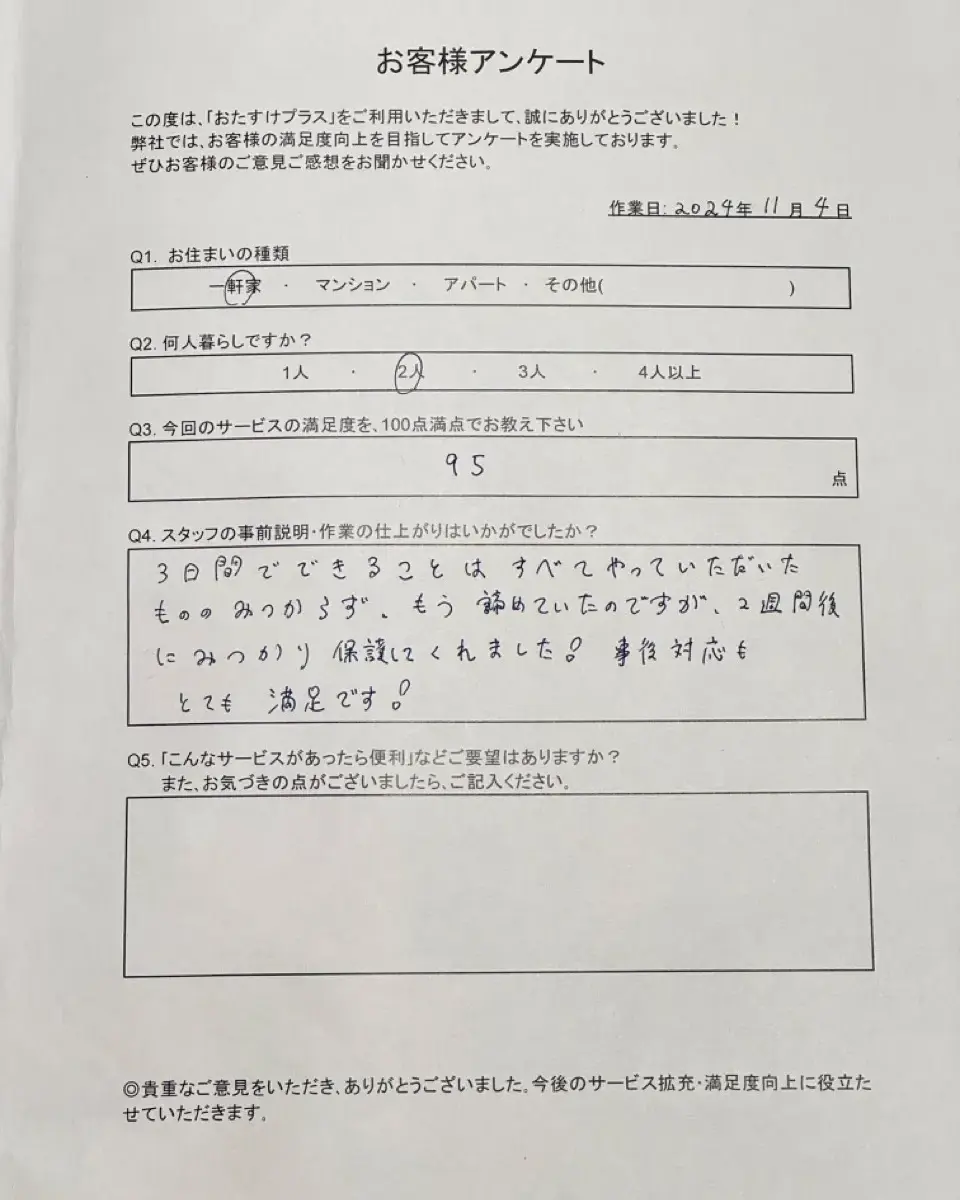 お客様アンケート
この度は、「おたすけプラス」をご利用いただきまして、誠にありがとうございました！
弊社では、お客様の満足度向上を目指してアンケートを実施しております。
ぜひお客様のご意見ご感想をお聞かせください。
作業日: 2024年 11月 4日
Q1. お住まいの種類
一軒家 ・ マンション ・ アパート ・ その他( )
Q2. 何人暮らしですか？
1人 ・ 2人 ・ 3人 ・ 4人以上
Q3. 今回のサービスの満足度を、100点満点でお教え下さい
95 点
Q4. スタッフの事前説明・作業の仕上がりはいかがでしたか？
3日間でできることはすべてやっていただいた
もののみつからず、もう諦めていたのですが、2週間後
にみつかり保護してくれました! 事後対応も
とても満足です!
Q5. 「こんなサービスがあったら便利」などご要望はありますか？
また、お気づきの点がございましたら、ご記入ください。
◎貴重なご意見をいただき、ありがとうございました。今後のサービス拡充・満足度向上に役立た
せていただきます。